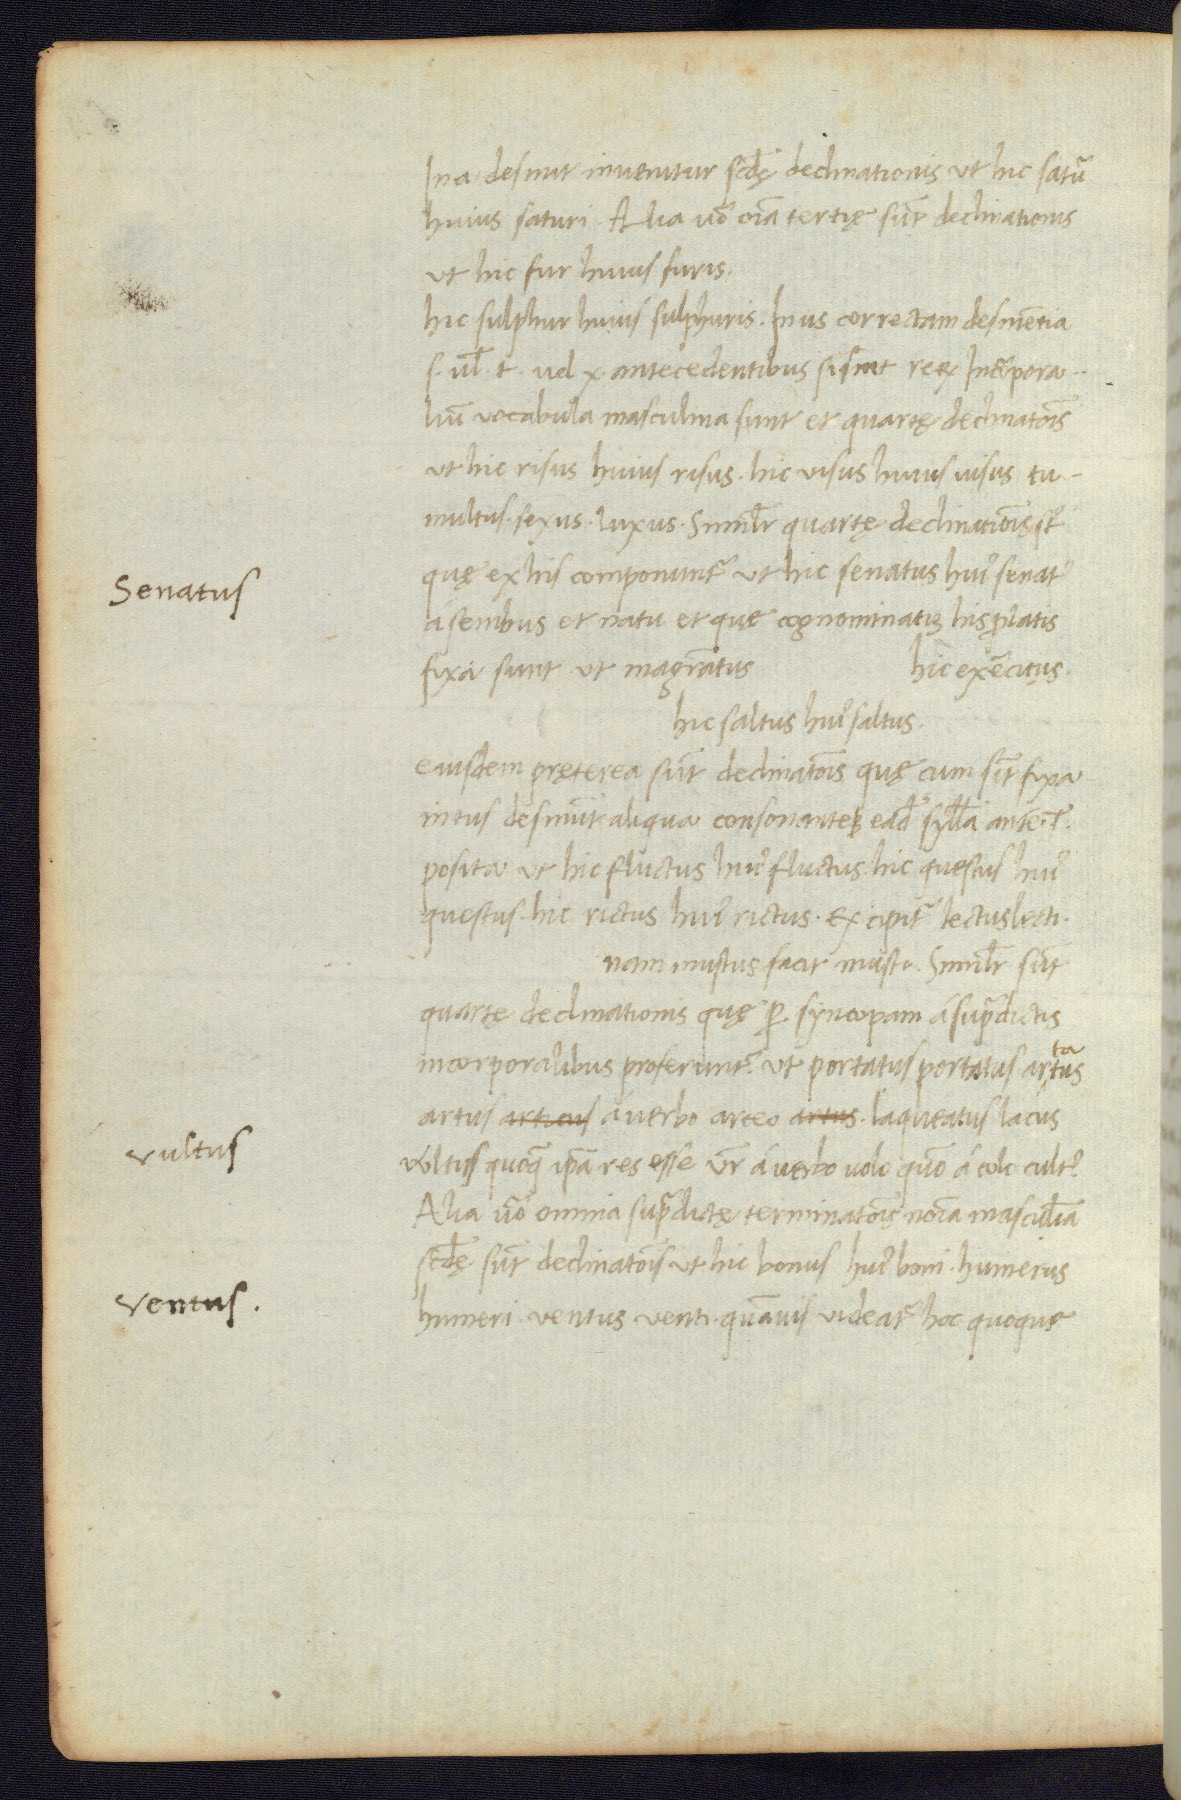 In a desinit inuenitur scdę declinationis ut hic satur̃
huius saturi. Alia uõ oĩa tertię sũt declinationis
ut hic fur huius furis.
hic sulphur huius sulphuris. In us correctam desinẽtia
s. ul̃. t. uel x. antecedentibus si sint reꝝ Incorpora-
liũ vocabula masculina sunt et quartę declinatõis
ut hic risus huius risus. hic visus huius uisus tu-
multus. sexus. luxus. Similr̃ quartę declinationis st̃
Senatus
quę ex his componunt̃ ut hic senatus hui9 senat9
á senibus et natu et que cognominatiõ his prolatis
fixa sunt ut magr̃atus hic exercitus.
hic saltus hui9 saltus.
eiusdem pręterea sũt declinatõis quę cum sĩt fixa
in tus desinũt aliqua consonante eadẽ sylla ante. t.
posita ut hic fluctus hui9 fluctus. hic questus hui9
questus. hic rictus hui9 rictus. Excipit̃ lectus lecti.
nam mustus facit musti. Similr̃ sũt
quartę declinationis quę p. syncopam á supradictis
incorporalibus proferunt̃. ut portatus portatus artatus
artus á uerbo arteo. laqueatus lacus
vultus
vultus quoq ipã res esse vr̃ á uerbo uolo quõ á colo cult9.
Alia uõ omnia supradictę terminatõis noĩa masculĩa
scdę sũt declinatõis ut hic bonus hui9 boni. humerus
ventus.
humeri. ventus venti. quãuis uideat̃ hoc quoque